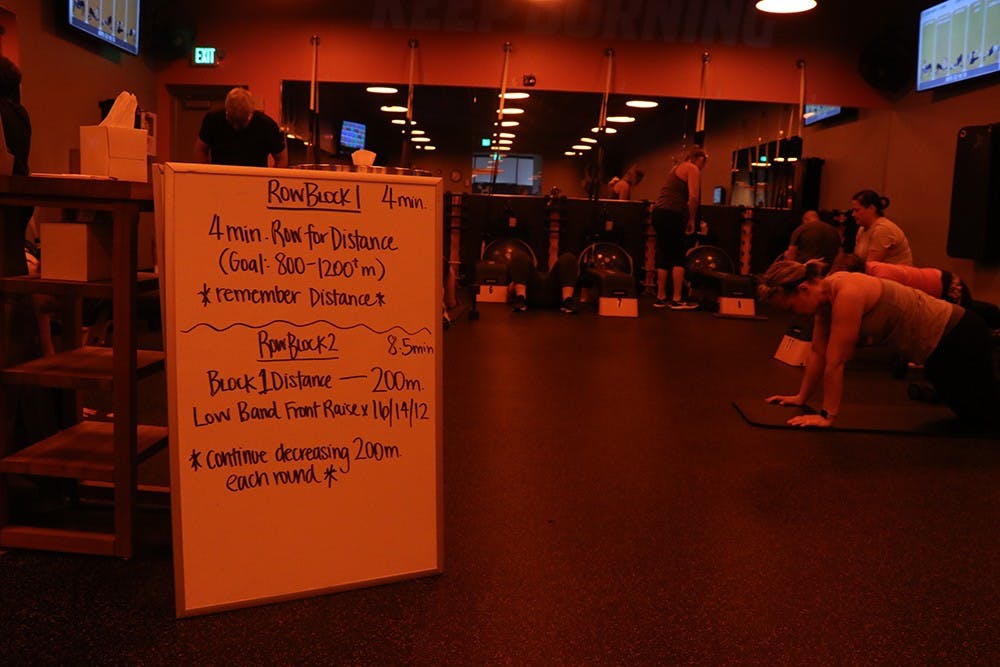 KEEP BURNING
EXIT
Row Block 1 4 min.
4 min. Row for Distance
(Goal: 800-1200+ m)
*remember Distance*
Row Block 2 8.5 min
Block 1 Distance — 200m.
Low Band Front Raise x 16/14/12
*Continue decreasing 200m.
each round*
6
7
8